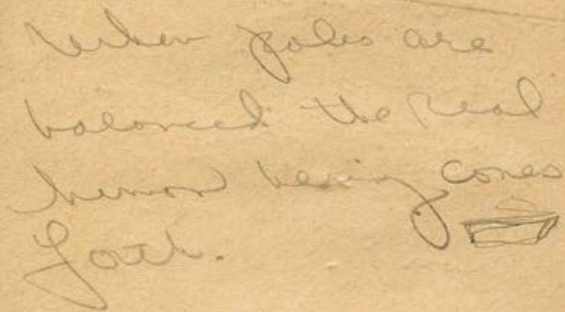 When poles are
balanced the real
human being comes
forth.